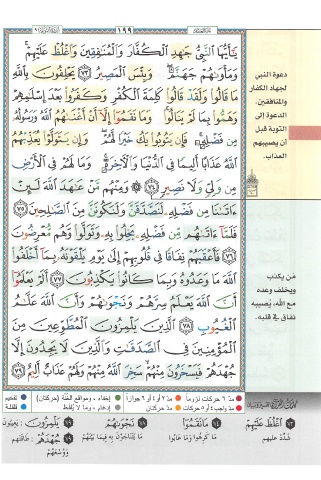 ١٩٩
يَـٰٓأَيُّهَا ٱلنَّبِيُّ جَـٰهِدِ ٱلْكُفَّارَ وَٱلْمُنَـٰفِقِينَ وَٱغْلُظْ عَلَيْهِمْ
وَمَأْوَىٰهُمْ جَهَنَّمُ وَبِئْسَ ٱلْمَصِيرُ ٧٣ يَحْلِفُونَ بِٱللَّهِ
مَا قَالُوا۟ وَلَقَدْ قَالُوا۟ كَلِمَةَ ٱلْكُفْرِ وَكَفَرُوا۟ بَعْدَ إِسْلَـٰمِهِمْ
وَهَمُّوا۟ بِمَا لَمْ يَنَالُوا۟ وَمَا نَقَمُوٓا۟ إِلَّآ أَنْ أَغْنَىٰهُمُ ٱللَّهُ وَرَسُولُهُۥ
مِن فَضْلِهِۦ فَإِن يَتُوبُوا۟ يَكُ خَيْرًا لَّهُمْ وَإِن يَتَوَلَّوْا۟ يُعَذِّبْهُمُ
ٱللَّهُ عَذَابًا أَلِيمًا فِى ٱلدُّنْيَا وَٱلْـَٔاخِرَةِ وَمَا لَهُمْ فِى ٱلْأَرْضِ
مِن وَلِىٍّ وَلَا نَصِيرٍ ٧٤ وَمِنْهُم مَّنْ عَـٰهَدَ ٱللَّهَ لَئِنْ
ءَاتَىٰنَا مِن فَضْلِهِۦ لَنَصَّدَّقَنَّ وَلَنَكُونَنَّ مِنَ ٱلصَّـٰلِحِينَ ٧٥
فَلَمَّآ ءَاتَىٰهُم مِّن فَضْلِهِۦ بَخِلُوا۟ بِهِۦ وَتَوَلَّوا۟ وَّهُم مُّعْرِضُونَ
٧٦ فَأَعْقَبَهُمْ نِفَاقًا فِى قُلُوبِهِمْ إِلَىٰ يَوْمِ يَلْقَوْنَهُۥ بِمَآ أَخْلَفُوا۟
ٱللَّهَ مَا وَعَدُوهُ وَبِمَا كَانُوا۟ يَكْذِبُونَ ٧٧ أَلَمْ يَعْلَمُوٓا۟
أَنَّ ٱللَّهَ يَعْلَمُ سِرَّهُمْ وَنَجْوَىٰهُمْ وَأَنَّ ٱللَّهَ عَلَّـٰمُ
ٱلْغُيُوبِ ٧٨ ٱلَّذِينَ يَلْمِزُونَ ٱلْمُطَّوِّعِينَ مِنَ
ٱلْمُؤْمِنِينَ فِى ٱلصَّدَقَـٰتِ وَٱلَّذِينَ لَا يَجِدُونَ إِلَّا
جُهْدَهُمْ فَيَسْخَرُونَ مِنْهُمْ سَخِرَ ٱللَّهُ مِنْهُمْ وَلَهُمْ عَذَابٌ أَلِيمٌ ٧٩
دعوة النبي
لجهاد الكفار
والمنافقين.
الدعوة إلى
التوبة قبل
أن يصيبهم
العذاب.
مَن يكذب
ويخلف وعده
مع الله، يُصيبه
نفاق في قلبه.
مدّ ٦ حركات لزوماً مدّ ٢ أو ٤ أو ٦ جوازاً إخفاء، ومواقع الغُنَّة (حركتان) تفخيم
مدّ واجب ٤ أو ٥ حركات مدّ حركتان إدغام، وما لا يُلفظ قلقلة
٧٣ ٱغْلُظْ عَلَيْهِمْ
شدّد عليهم
٧٤ مَا نَقَمُوٓا۟
ما كرهوا وما عابوا
٧٨ نَجْوَىٰهُمْ
ما يتناجون به فيما بينهم
٧٩ يَلْمِزُونَ: يعيبون
٧٩ جُهْدَهُمْ: طاقتهم
ووسعهم